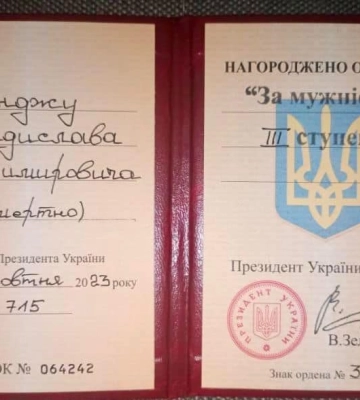 нджу
дислава
димировича
(смертно)
Президента України
овтня 2023 року
715
ОК № 064242
НАГОРОДЖЕНО О
"За мужніс
III ступе
Президент Україн
ПРЕЗИДЕНТ УКРАЇНИ
В.Зел
Знак ордена № 3